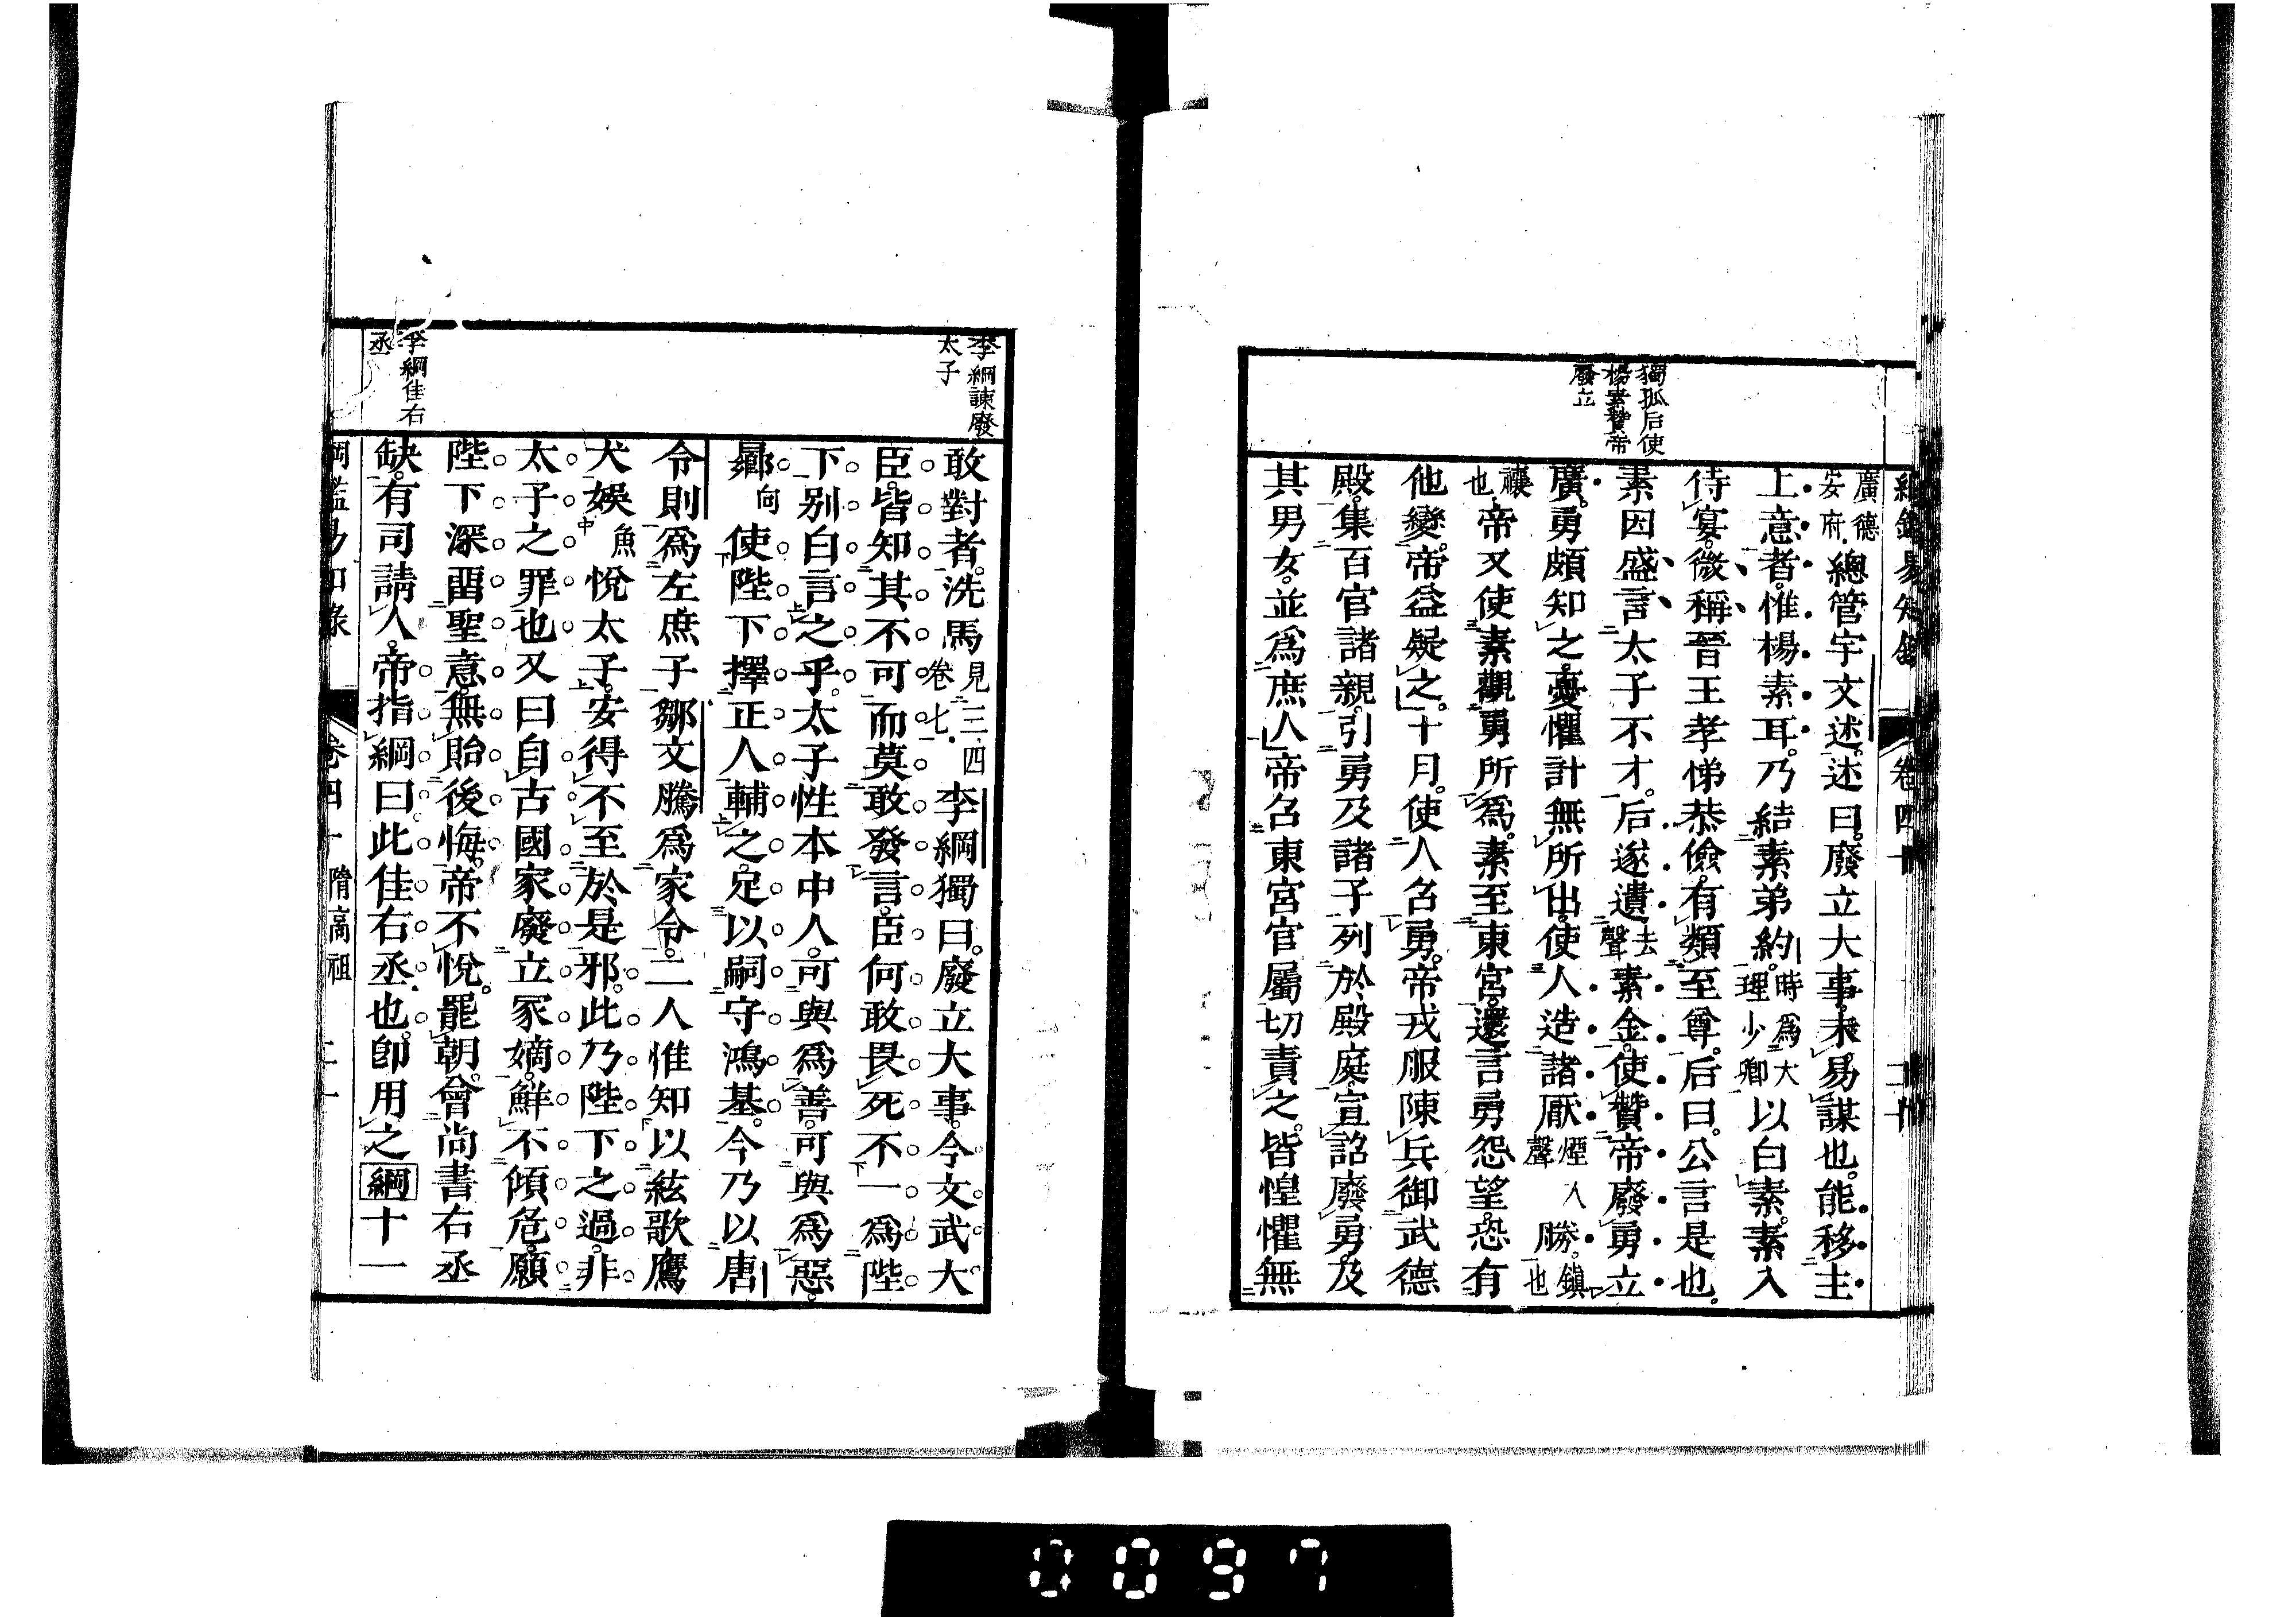 綱鑑易知錄 卷四十 二十
獨孤后使
楊素贊帝
廢立
廣德安府.總管宇文述。述曰。廢立大事。未易謀也。能移主
上意者。惟楊素耳。乃結素弟約。時爲大理少卿以白素。素入
侍宴。微稱晉王孝悌恭儉。有類至尊。后曰。公言是也。
素因盛言太子不才。后遂遺去聲素金。使贊帝廢勇立
廣。勇頗知之。憂懼計無所出。使人造諸厭煙入聲勝。鎮也
禳也.帝又使素觀勇所爲。素至東宮。還言勇怨望。恐有
他變。帝益疑之。十月。使人召勇。帝戎服陳兵御武德
殿。集百官諸親。引勇及諸子列於殿庭。宣詔廢勇。及
其男女。並爲庶人。帝召東宮官屬切責之。皆惶懼無
李綱諫廢
太子
敢對者。洗馬見三四卷七.李綱獨曰。廢立大事。今文武大
臣。皆知其不可而莫敢發言。臣何敢畏死不一爲陛
下别白言之乎。太子性本中人。可與爲善。可與爲惡。
曏向使陛下擇正人輔之。足以嗣守鴻基。今乃以唐
令則爲左庶子鄒文騰爲家令。二人惟知以絃歌鷹
犬娛魚悅太子。安得不至於是邪。此乃陛下之過。非
太子之罪也又曰自古國家廢立冢嫡。鮮不傾危。願
陛下深畱聖意。無貽後悔。帝不悅。罷朝。會尚書右丞
缺。有司請人。帝指綱曰此佳右丞也。卽用之綱十一
李綱佳右
丞
綱鑑易知錄 卷四十 隋高祖 二十一